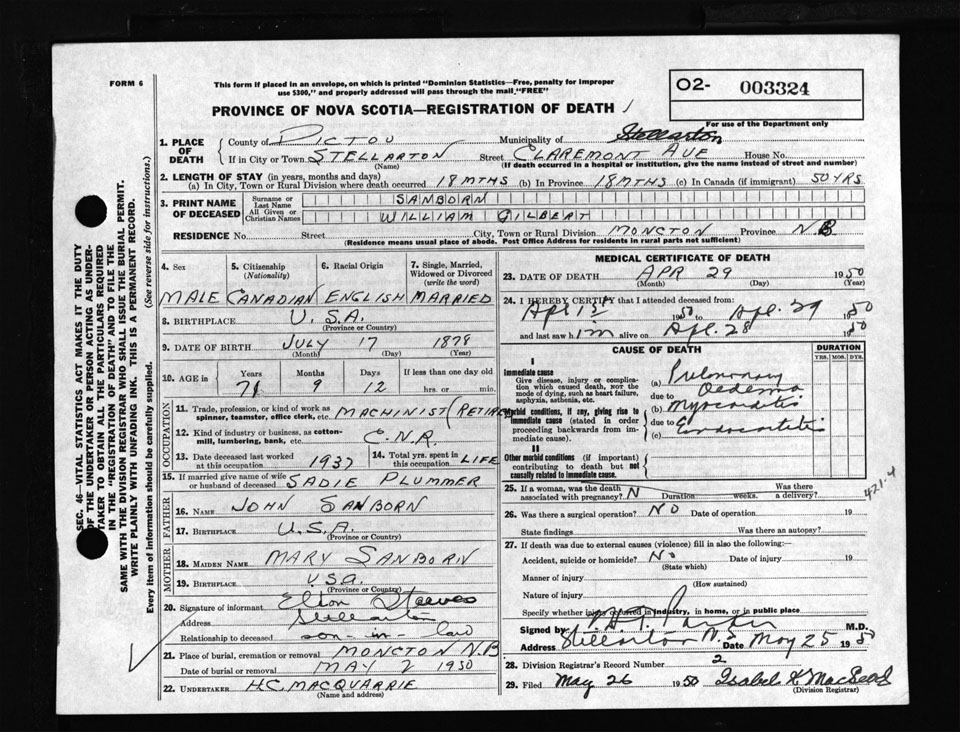 FORM 6
This form if placed in an envelope, on which is printed "Dominion Statistics—Free, penalty for improper
use $300," and properly addressed will pass through the mail "FREE"
O2- 003324
For use of the Department only
PROVINCE OF NOVA SCOTIA—REGISTRATION OF DEATH
SEC. 46—VITAL STATISTICS ACT MAKES IT THE DUTY
OF THE UNDERTAKER OR PERSON ACTING AS UNDER-
TAKER TO OBTAIN ALL THE PARTICULARS REQUIRED
IN THE "REGISTRATION OF DEATH" AND TO FILE THE
SAME WITH THE DIVISION REGISTRAR WHO SHALL ISSUE THE BURIAL PERMIT.
WRITE PLAINLY WITH UNFADING INK. THIS IS A PERMANENT RECORD.
Every item of information should be carefully supplied. (See reverse side for instructions.)
1. PLACE OF DEATH
County of PICTOU Municipality of Stellarton
If in City or Town STELLARTON Street CLAREMONT AVE House No.
(Name) (If death occurred in a hospital or institution, give the name instead of street and number)
2. LENGTH OF STAY (in years, months and days)
(a) In City, Town or Rural Division where death occurred 18 MTHS (b) In Province 18 MTHS (c) In Canada (if immigrant) 50 YRS
3. PRINT NAME OF DECEASED
Surname or Last Name SANBORN
All Given or Christian Names WILLIAM GILBERT
RESIDENCE No. Street City, Town or Rural Division MONCTON Province N.B
(Residence means usual place of abode. Post Office Address for residents in rural parts not sufficient)
4. Sex MALE
5. Citizenship (Nationality) CANADIAN
6. Racial Origin ENGLISH
7. Single, Married, Widowed or Divorced (write the word) MARRIED
8. BIRTHPLACE U.S.A.
(Province or Country)
9. DATE OF BIRTH JULY 17 1878
(Month) (Day) (Year)
10. AGE in Years Months Days If less than one day old
71 9 12 hrs. or min.
OCCUPATION
11. Trade, profession or kind of work as spinner, teamster, office clerk, etc. MACHINIST (RETIRED
12. Kind of industry or business, as cotton-mill, lumbering, bank, etc. C.N.R.
13. Date deceased last worked at this occupation 1937
14. Total yrs. spent in this occupation LIFE
15. If married give name of wife or husband of deceased SADIE PLUMMER
FATHER
16. NAME JOHN SANBORN
17. BIRTHPLACE U.S.A.
(Province or Country)
MOTHER
18. MAIDEN NAME MARY SANBORN
19. BIRTHPLACE USA.
(Province or Country)
20. Signature of informant Elton Steeves
Address Stellarton
Relationship to deceased son-in-law
21. Place of burial, cremation or removal MONCTON N.B
Date of burial or removal MAY 2 1950
22. UNDERTAKER H.C. MACQUARRIE
(Name and address)
MEDICAL CERTIFICATE OF DEATH
23. DATE OF DEATH APR 29 1950
(Month) (Day) (Year)
24. I HEREBY CERTIFY that I attended deceased from:
Apl 1st 1950 to Apl. 29 1950
and last saw him alive on Apl. 28 1950
CAUSE OF DEATH
DURATION
YRS. MOS. DYS.
I
Immediate cause
Give disease, injury or complication which caused death, NOT the mode of dying, such as heart failure, asphyxia, asthenia, etc.
(a) Pulmonary Oedema
due to
Morbid conditions, if any, giving rise to immediate cause (stated in order proceeding backwards from immediate cause).
(b) Myocarditis
due to
(c) Endocarditis
II
Other morbid conditions (if important) contributing to death but not causally related to immediate cause.
25. If a woman, was the death associated with pregnancy? N Duration weeks. Was there a delivery?
421-4
26. Was there a surgical operation? NO Date of operation 19
State findings Was there an autopsy?
27. If death was due to external causes (violence) fill in also the following:—
Accident, suicide or homicide? No Date of injury 19
(State which)
Manner of injury
(How sustained)
Nature of injury
Specify whether injury occurred in industry, in home, or in public place
Signed by Parker M.D.
Address Stellarton N.S Date May 25 1950
28. Division Registrar's Record Number 2
29. Filed May 26 1950 Isabel K. MacLeod
(Division Registrar)